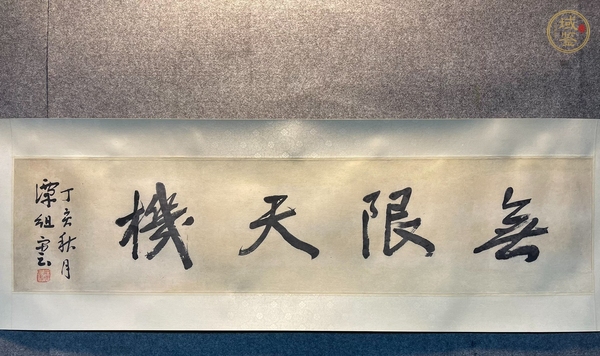 無限天機
丁亥秋月
譚組雲
域鉴